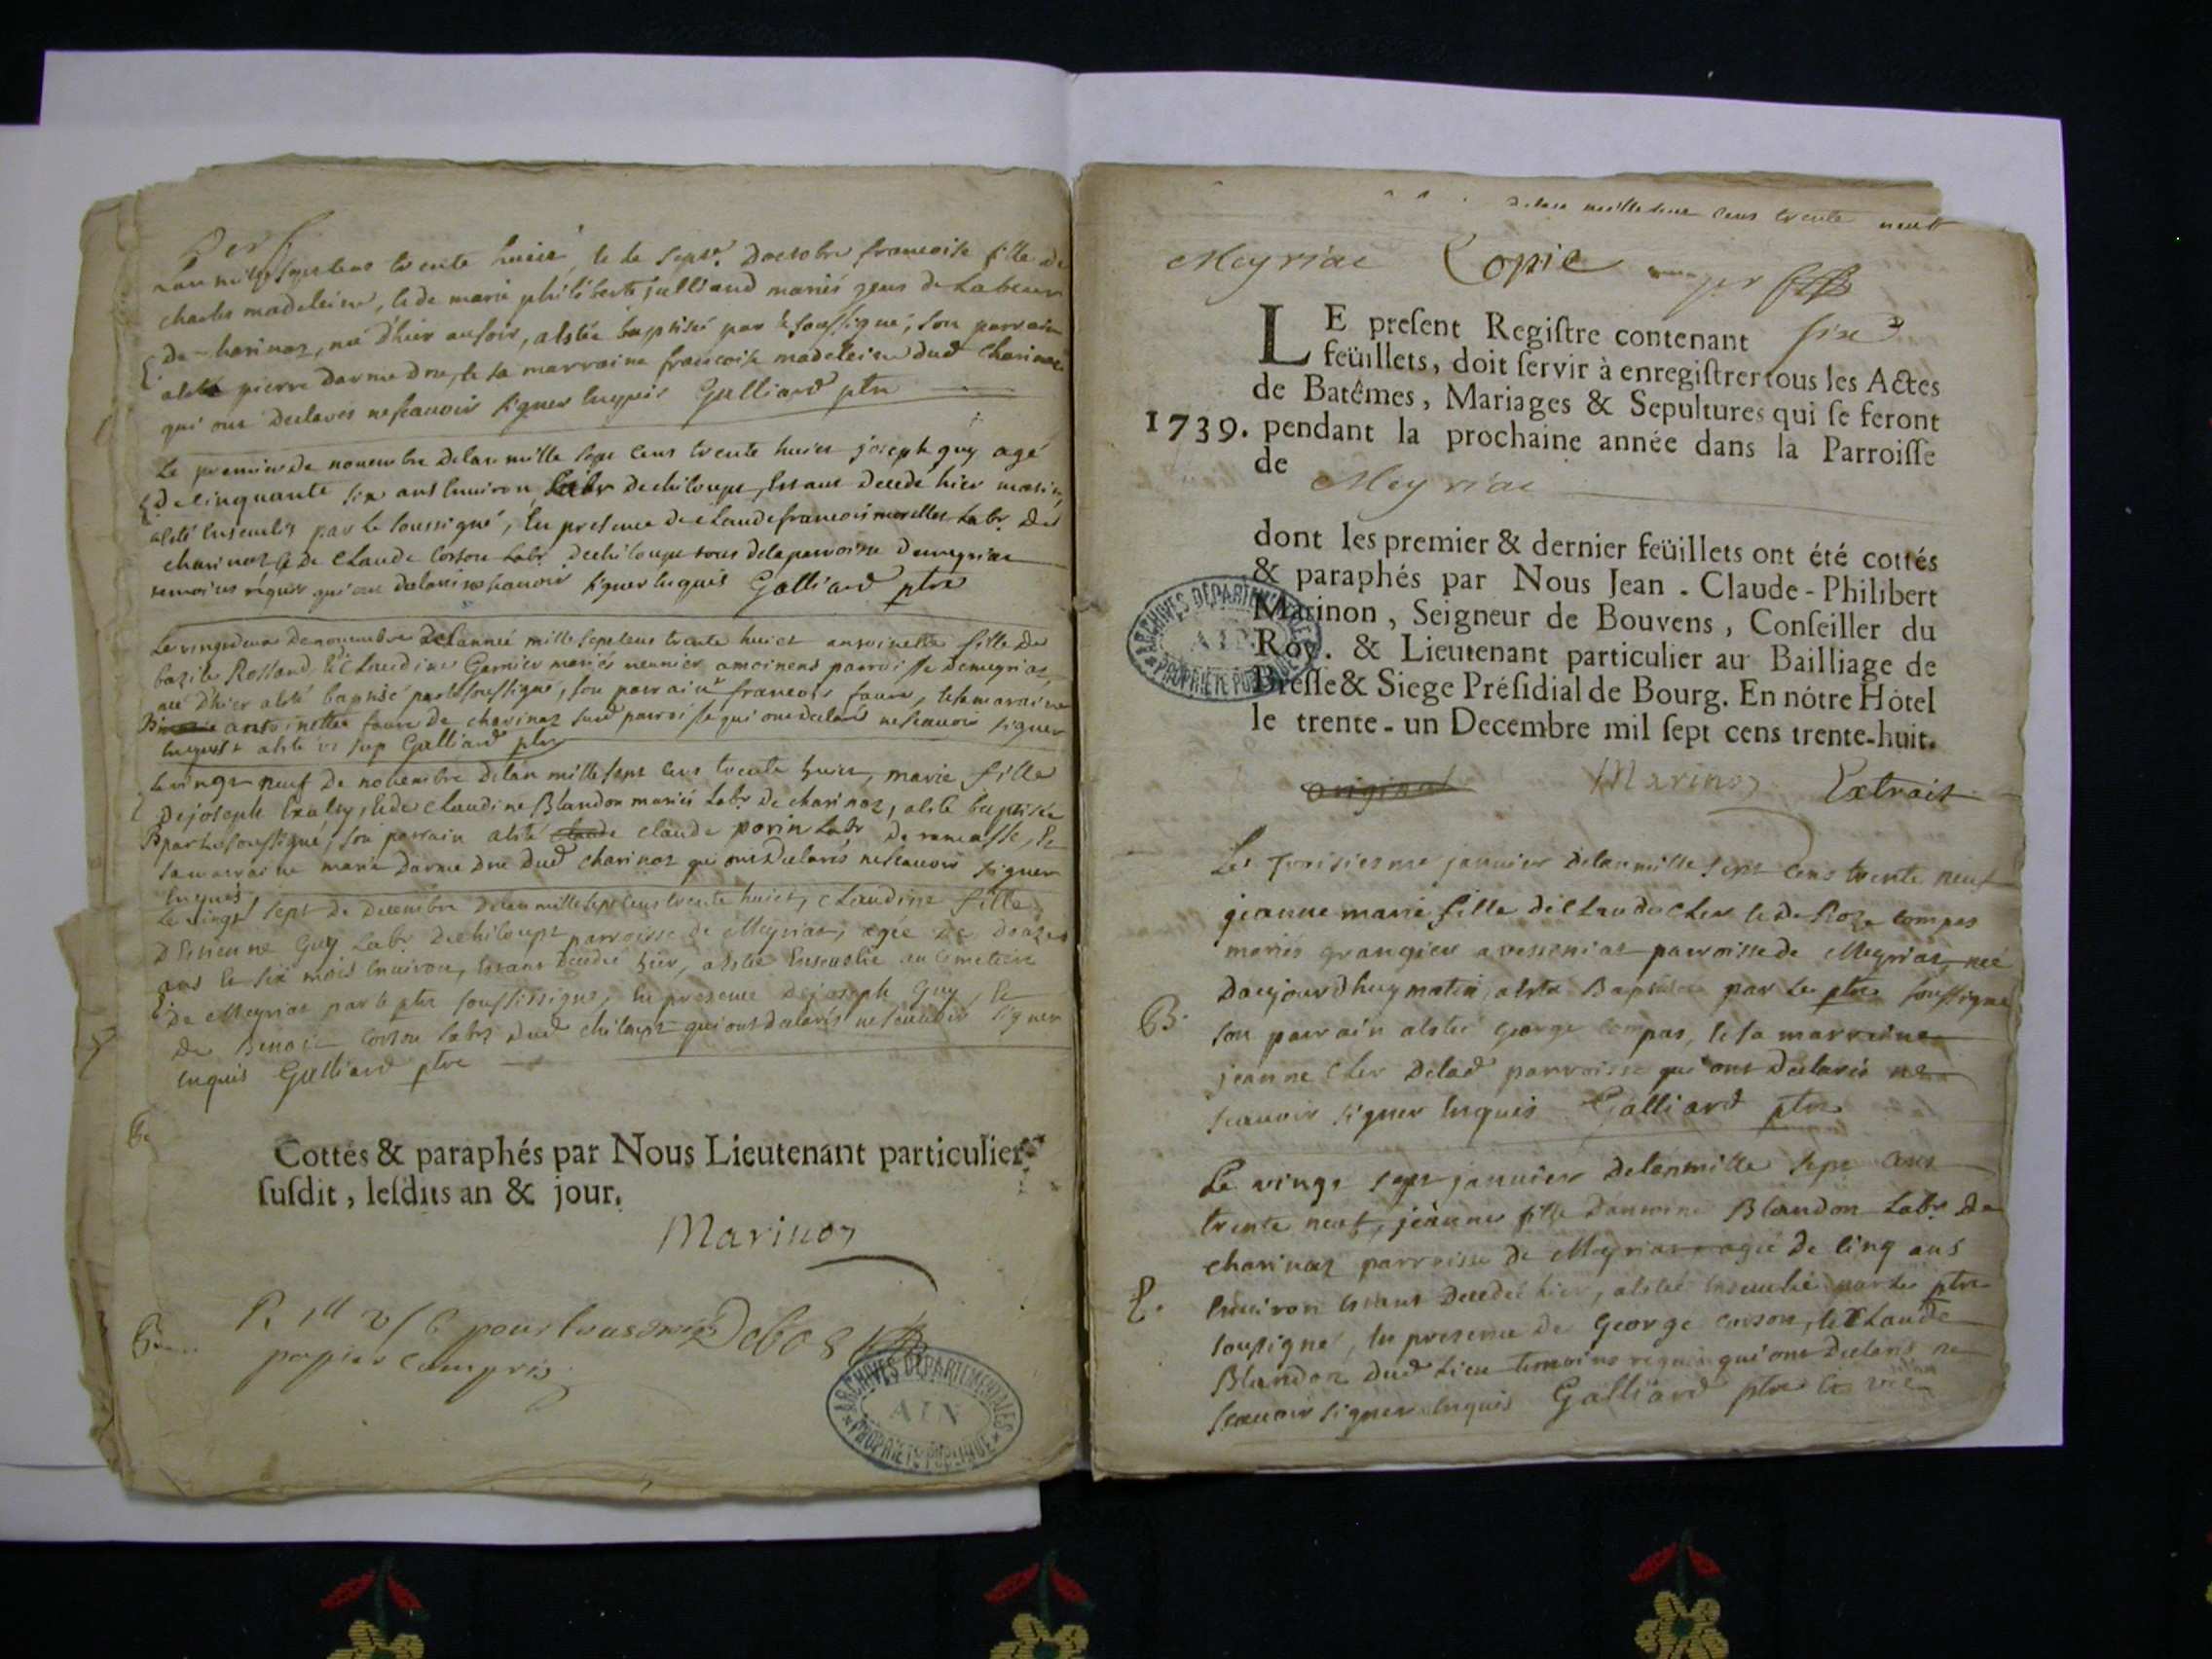 Lan mille sept cens trente huict, & le sept.e doctobre francoise fille de
charles madeleine, & de marie philiberte julliand mariés gens de Labeur
De charinaz, née d'hier au soir, a esté baptisée par le soussigné, son parrain
a esté pierre Darmedne, & sa marraine francoise madeleine dud charinaz
qui ont declarés ne scauoir signer enquis Galliard ptre
Le premier de nouembre delan mille sept cens trente huict joseph guy agé
De cinquante six ans enuiron, Labr de chiloup, estant decede hier matin,
a esté enseueli par le soussigné, en presence de claude francois morellet Labr de
charinaz & de Claude Corson Labr de chiloup tous de la parroisse de meyriac
temoins requis qui ont declaris ne scauoir signer enquis Galliard ptre
Le vingt deux de nouembre de lannee mille sept cens trente huict antoinette fille de
bazile Rolland, & Claudine Garnier mariés meunier a moinens parroisse de meyriaz,
née d'hier a esté baptisée par le soussigné, son parrain francois faure, & sa maraine
B antoinette faure de charinaz sus parroisse qui ont declarés ne scauoir signer
enquis a esté vt sup Galliard ptre
Le vingt neuf de nouembre de lan mille sept cens trente huict, marie fille
De joseph & de claudine Blandon mariés Labr. de charinaz, a esté baptisée
B par le soussigné, son parrain a esté claude porin Labr. de ramasse, &
sa marraine marie Darmedne dud charinaz qui ont declarés ne scauoir signer
enquis
Le vingt sept de decembre de lan mille sept cens trente huict, claudine fille
D'Estienne Guy Labr de chiloup parroisse de Meyriaz, agée de douze
ans & six mois enuiron, estant decedée hier, a esté enseuelie au cimetiere
De Meyriaz par le ptre soussigné, en presence de joseph Guy, &
de Benoit Corson Labrs dud chiloup qui ont declarés ne scauoir signer
enquis Galliard ptre
Cottés & paraphés par Nous Lieutenant particulier
susdit, lesdits an & jour.
Marinon
pour tous droits Debost
papier compris
de lan mille sept cens trente neuf
Meyriac Copie
LE present Registre contenant six
feüillets, doit servir à enregistrer tous les Actes
de Batêmes, Mariages & Sepultures qui se feront
1739. pendant la prochaine année dans la Parroisse
de Meyriac
dont les premier & dernier feüillets ont été cottés
& paraphés par Nous Jean-Claude-Philibert
Marinon, Seigneur de Bouvens, Conseiller du
Roy. & Lieutenant particulier au Bailliage de
Bresse & Siege Présidial de Bourg. En nôtre Hôtel
le trente-un Decembre mil sept cens trente-huit.
original Marinon Extrait
Le troisiesme janvier de lan mille sept cens trente neuf
jeanne marie fille de claude Cler & de Roze compas
mariés grangiers a vessignat parroisse de Meyriaz, née
Daujourdhuy matin, a esté Baptisée par le ptre soussigné
B. son parrain a esté george compas, & sa marraine
jeanne Cler de lad parroisse qui ont declarés ne
scauoir signer enquis Galliard ptre
Le vingt sept januier de lan mille sept cens
trente neuf, jeanne fille d'antoine Blandon Labr. de
charinaz parroisse de Meyriaz agée de cinq ans
E. enuiron estant decedée hier, a esté enseuelie par le ptre
soussigné, en presence de George Corson, & Claude
Blandon dud lieu temoins requis qui ont declarés ne
scauoir signer enquis Galliard ptre
ARCHIVES DÉPARTEMENTALES
AIN
PROPRIÉTÉ PUBLIQUE
ARCHIVES DÉPARTEMENTALES
AIN
PROPRIÉTÉ PUBLIQUE